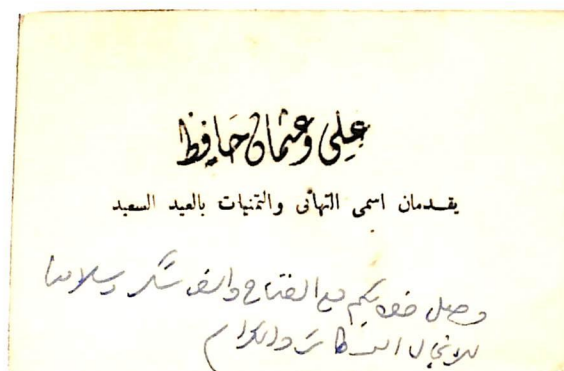 علي وعثمان حافظ
يقدمان اسمى التهانى والتمنيات بالعيد السعيد
وصل خطابكم مع المفتاح والف شكر وسلامنا
للانجال والكرام